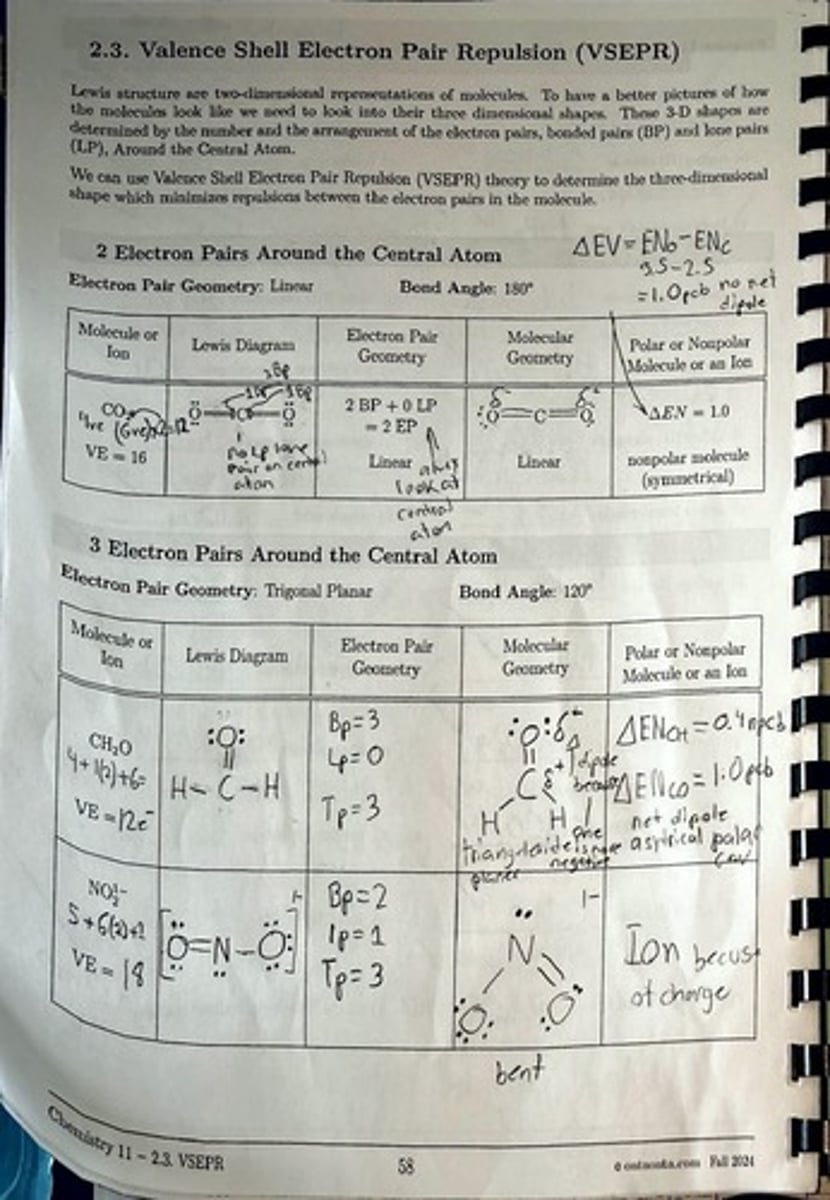 2.3. Valence Shell Electron Pair Repulsion (VSEPR)
Lewis structure are two-dimensional representations of molecules. To have a better pictures of how
the molecules look like we need to look into their three dimensional shapes. These 3-D shapes are
determined by the number and the arrangement of the electron pairs, bonded pairs (BP) and lone pairs
(LP), Around the Central Atom.
We can use Valence Shell Electron Pair Repulsion (VSEPR) theory to determine the three-dimensional
shape which minimizes repulsions between the electron pairs in the molecule.
2 Electron Pairs Around the Central Atom
ΔEV = ENb - ENc
3.5-2.5
= 1.0 pcb no net
dipole
Electron Pair Geometry: Linear Bond Angle: 180°
Molecule or Ion
Lewis Diagram
Electron Pair Geometry
Molecular Geometry
Polar or Nonpolar Molecule or an Ion
CO₂
VE = 16
O C O
no Lp lone
pair on central
atom
2 BP + 0 LP
= 2 EP
Linear
look at
central
atom
:O=C=O:
Linear
ΔEN = 1.0
nonpolar molecule
(symmetrical)
3 Electron Pairs Around the Central Atom
Electron Pair Geometry: Trigonal Planar Bond Angle: 120°
Molecule or Ion
Lewis Diagram
Electron Pair Geometry
Molecular Geometry
Polar or Nonpolar Molecule or an Ion
CH₂O
4+1(2)+6=
VE = 12e⁻
:O:
H-C-H
Bp=3
Lp=0
Tp=3
:O: δ
C δ+ dipole
H H
planer
ΔENCH = 0.4 npcb
ΔENCO = 1.0 pcb
net dipole
NO₂¹⁻
VE = 18
[O=N-O:] 1-
Bp=2
lp=1
Tp=3
1-
N
O O
bent
Ion becus
of charge
Chemistry 11 – 2.3. VSEPR
58
Fall 2024